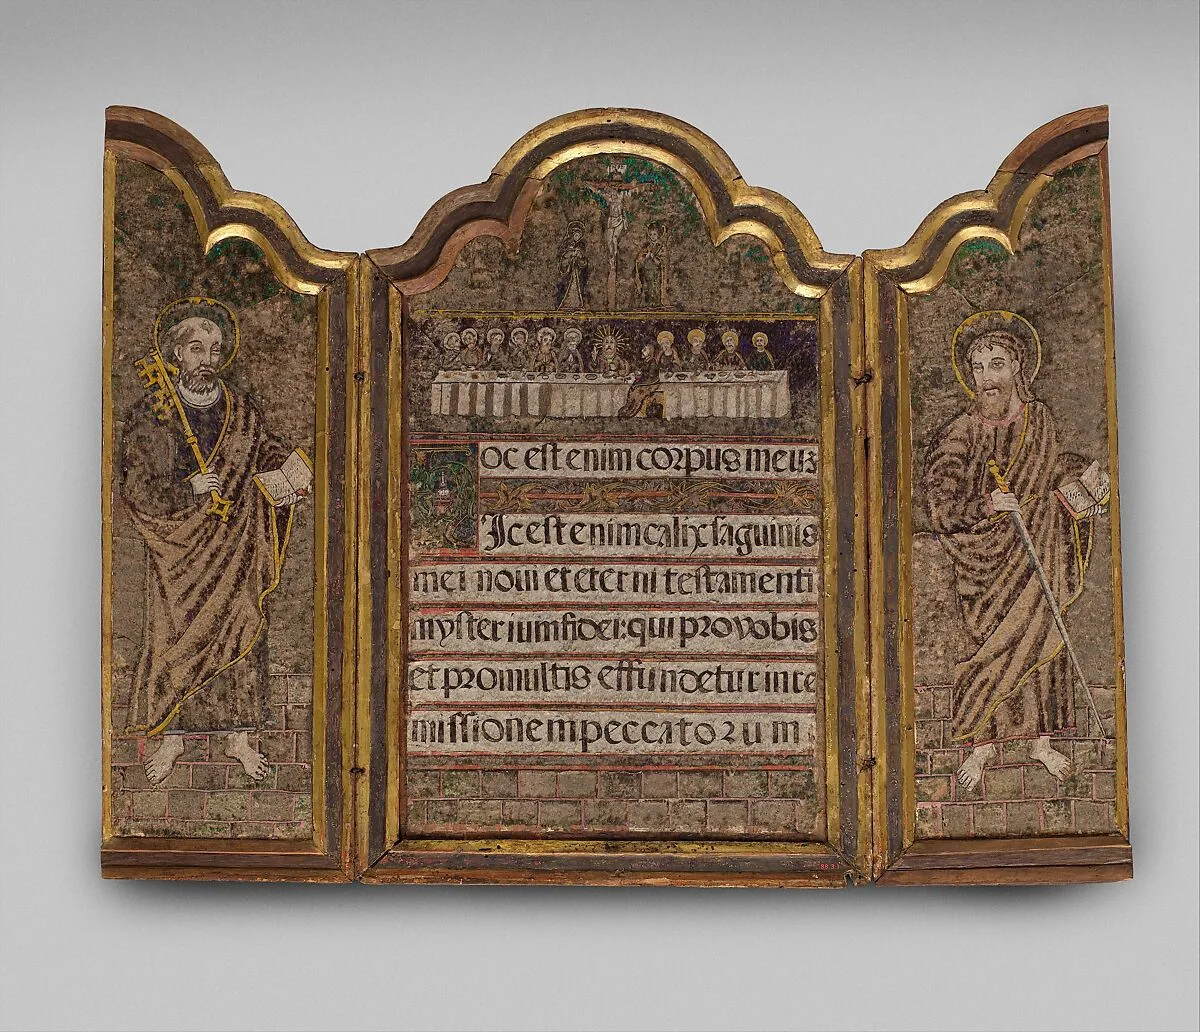 Hoc est enim corpus meuz
Ic est enim calix saguinis
mei noui et eterni testamenti
mysterium fidei: qui pro vobis
et pro multis effundetur in re
missionem peccatorum
88.3.1